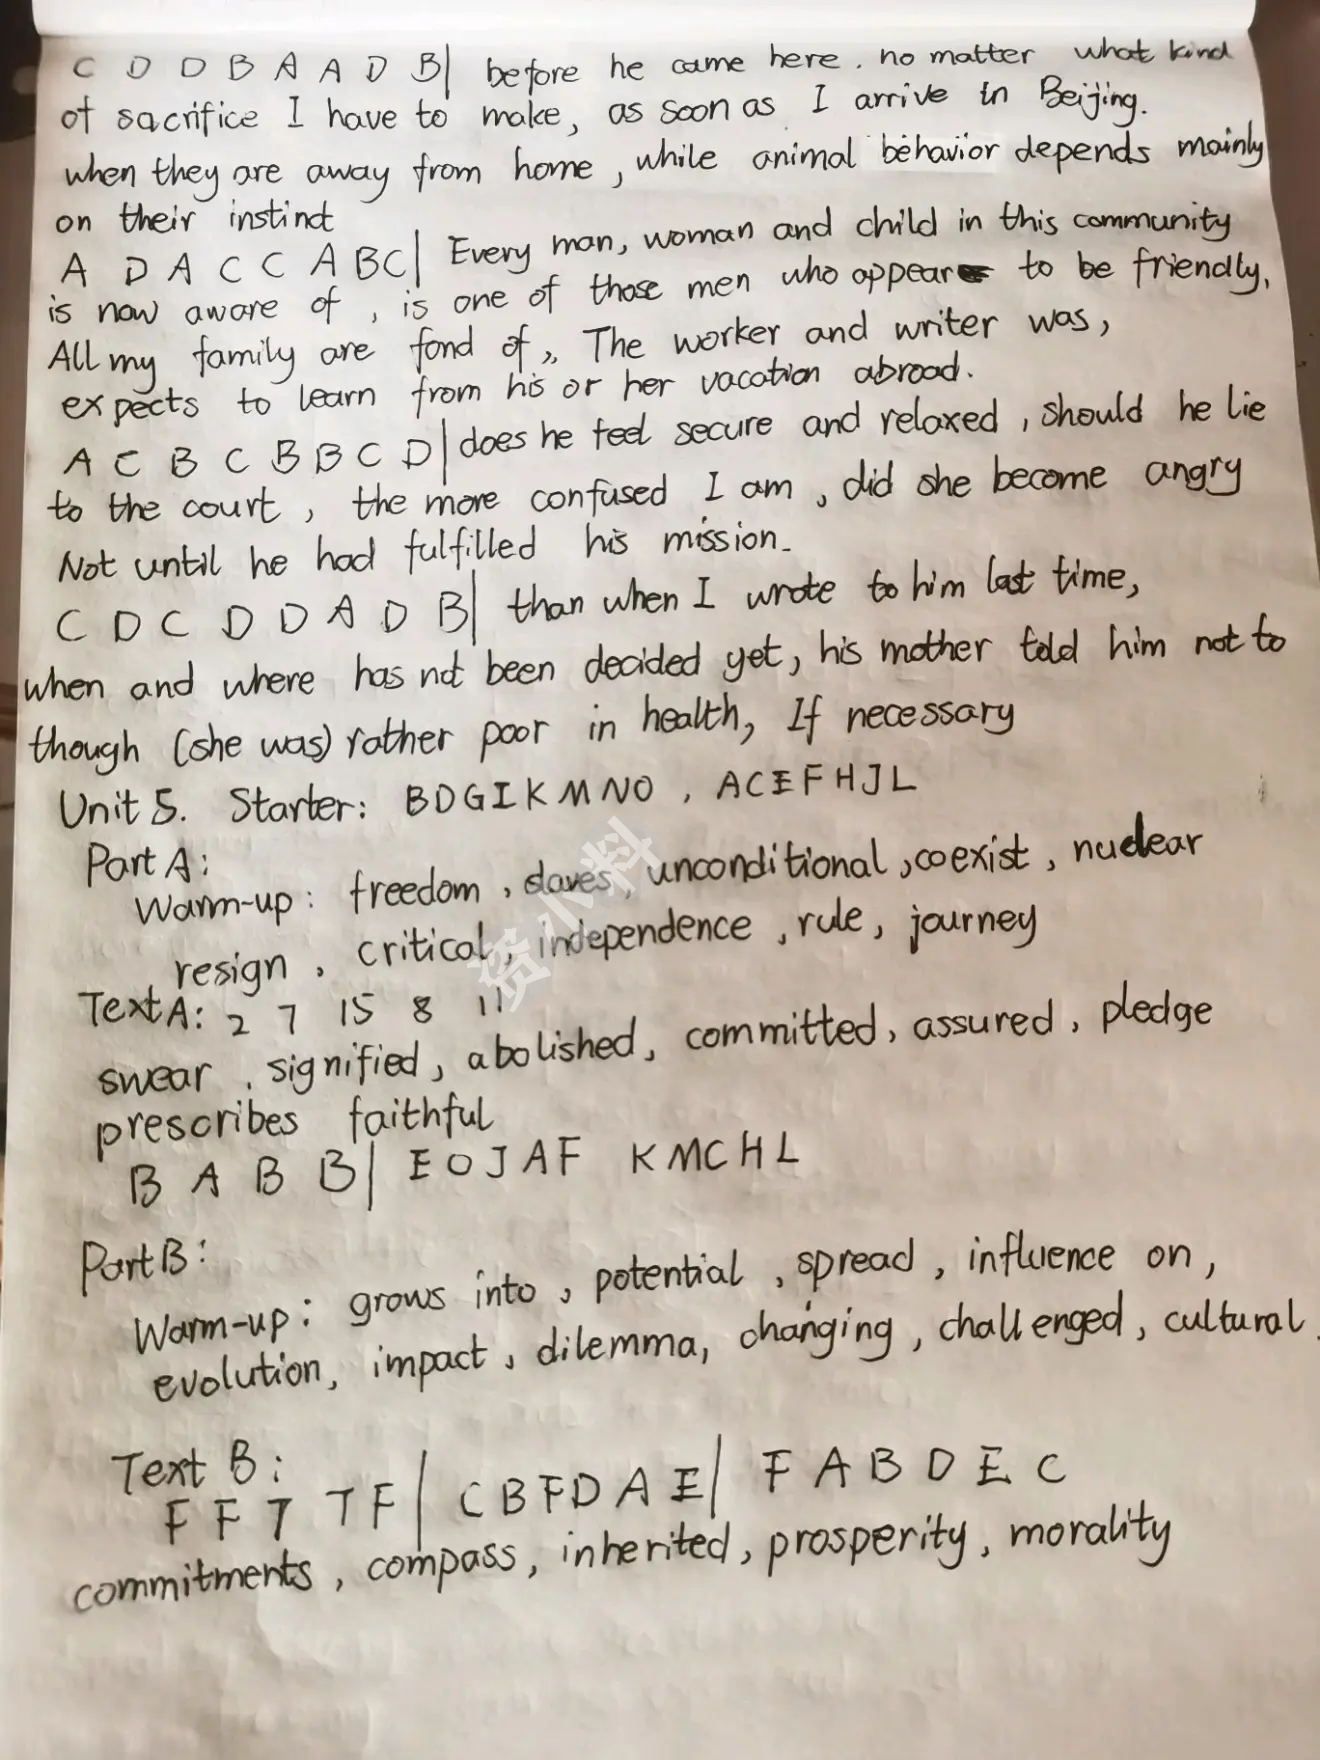 C D D B A A D B| before he came here. no matter what kind
of sacrifice I have to make, as soon as I arrive in Beijing.
when they are away from home, while animal behavior depends mainly
on their instinct
A D A C C A B C| Every man, woman and child in this community
is now aware of, is one of those men who appear to be friendly,
All my family are fond of, The worker and writer was,
expects to learn from his or her vacation abroad.
A C B C B B C D| does he feel secure and relaxed, should he lie
to the court, the more confused I am, did she become angry
Not until he had fulfilled his mission.
C D C D D A D B| than when I wrote to him last time,
when and where has not been decided yet, his mother told him not to
though (she was) rather poor in health, If necessary
Unit 5. Starter: BDGIKMNO, ACEFHJL
Part A:
Warm-up: freedom, slaves, unconditional, coexist, nuclear
resign, critical, independence, rule, journey
Text A: 2 7 15 8 11
swear, signified, abolished, committed, assured, pledge
prescribes faithful
B A B B| E O J A F K M C H L
Part B:
Warm-up: grows into, potential, spread, influence on,
evolution, impact, dilemma, changing, challenged, cultural.
Text B:
F F T T F| C B F D A E| F A B D E C
commitments, compass, inherited, prosperity, morality
资小料